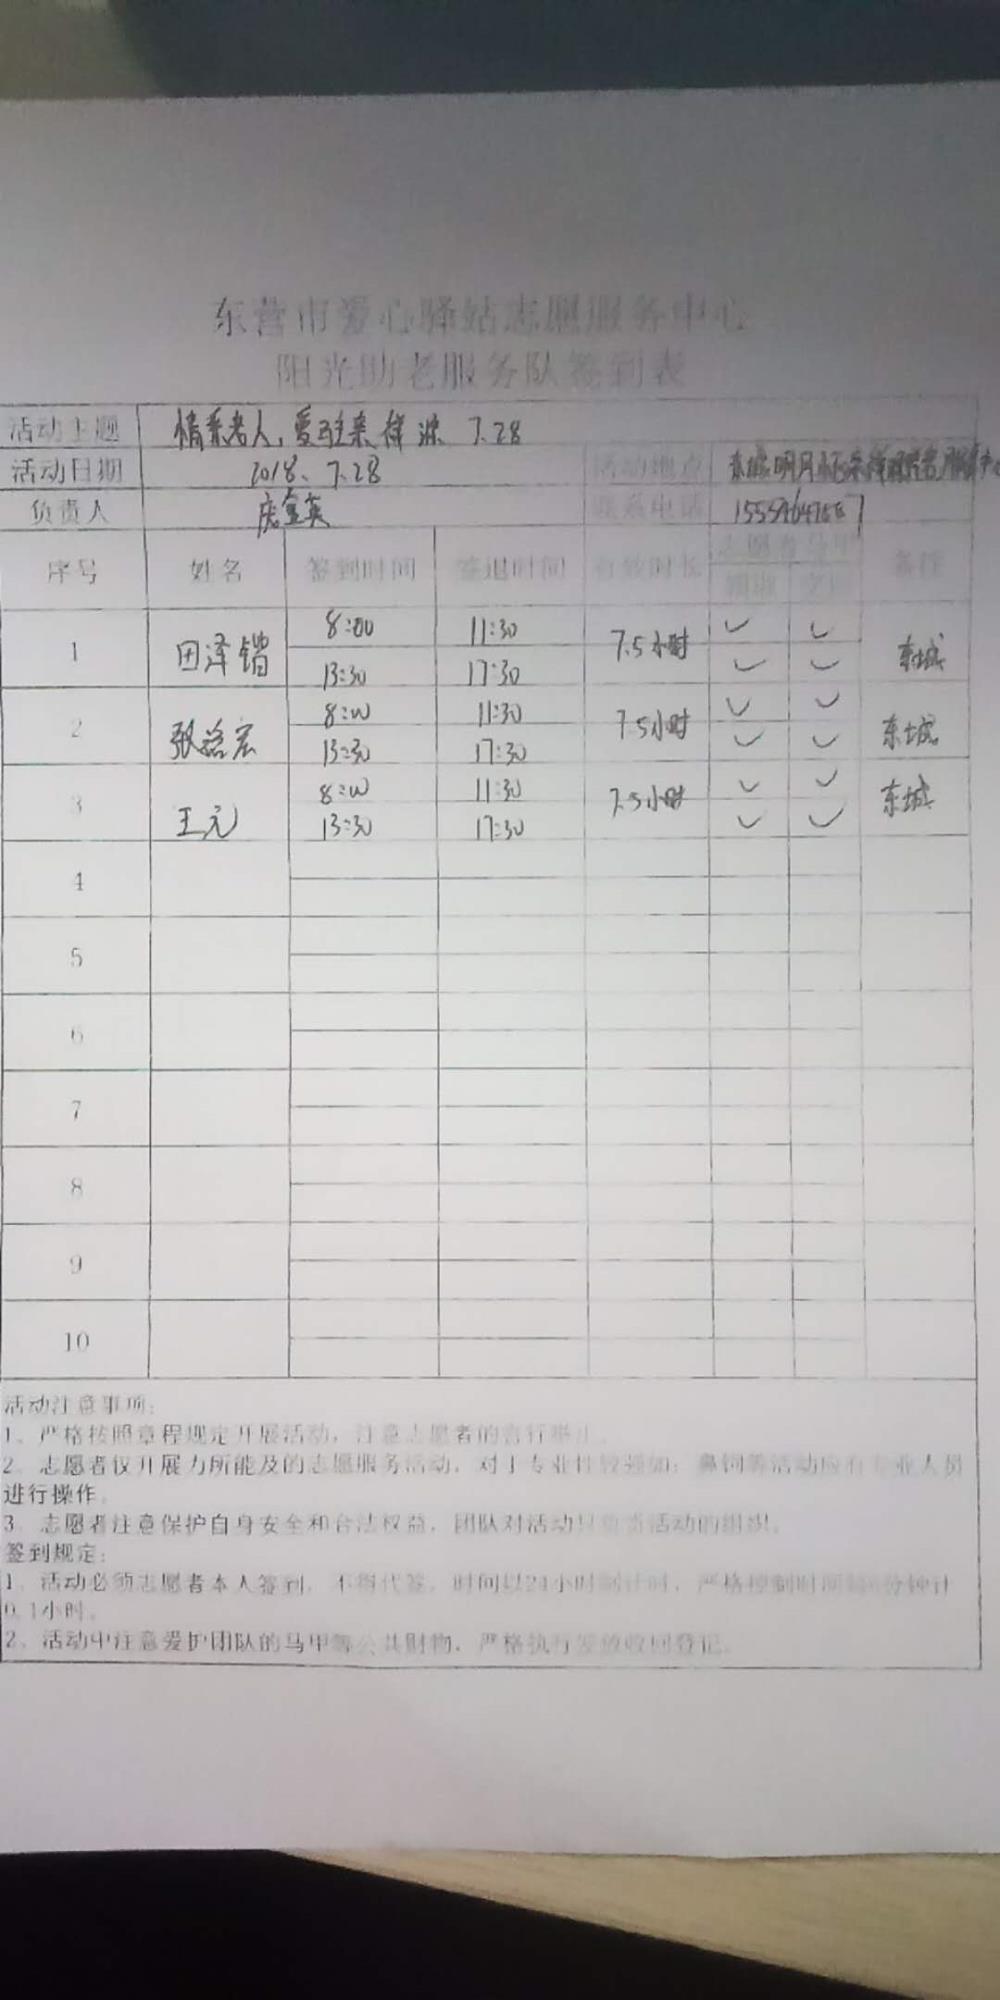 东营市爱心驿站志愿服务中心
阳光助老服务队签到表
活动主题 情系老人,爱驻来祥源 7.28
活动日期 2018、7.28 活动地点 东城明月
负责人 庞金英 联系电话
序号 姓名 签到时间 签退时间 有效时长 志愿者马甲 备注
领取 交回
1 田泽锴 8:00 11:30 7.5小时 ✓ ✓ 东城
13:30 17:30 ✓ ✓
2 张 宏 8:00 11:30 7.5小时 ✓ ✓ 东城
13:30 17:30 ✓ ✓
3 王元 8:00 11:30 7.5小时 ✓ ✓ 东城
13:30 17:30 ✓ ✓
4
5
6
7
8
9
10
活动注意事项:
1、严格按照章程规定开展活动,注意志愿者的言行举止。
2、志愿者仅开展力所能及的志愿服务活动,对于专业性较强如:鼻饲等活动应有专业人员
进行操作。
3、志愿者注意保护自身安全和合法权益,团队对活动只负责活动的组织。
签到规定:
1、活动必须志愿者本人签到,不得代签,时间以24小时制计时,严格控制时间 6分钟计
0.1小时。
2、活动中注意爱护团队的马甲等公共财物,严格执行发放收回登记。